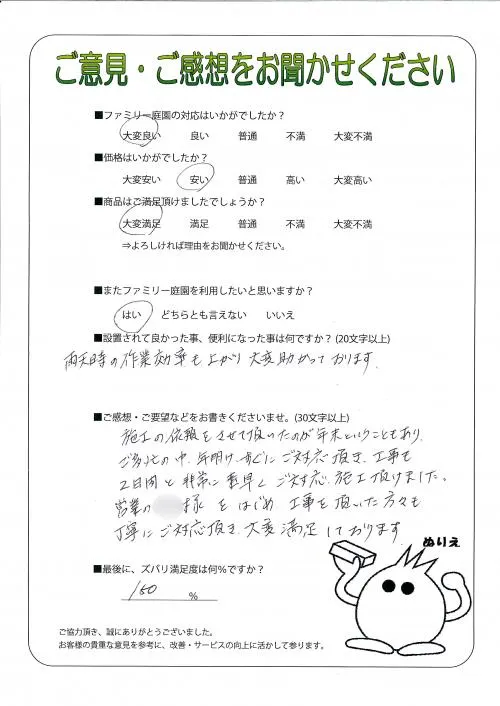 ご意見・ご感想をお聞かせください
■ファミリー庭園の対応はいかがでしたか？
大変良い 良い 普通 不満 大変不満
■価格はいかがでしたか？
大変安い 安い 普通 高い 大変高い
■商品はご満足頂けましたでしょうか？
大変満足 満足 普通 不満 大変不満
⇒よろしければ理由をお聞かせください。
■またファミリー庭園を利用したいと思いますか？
はい どちらとも言えない いいえ
■設置されて良かった事、便利になった事は何ですか？(20文字以上)
雨天時の作業効率も上がり大変助かっております。
■ご感想・ご要望などをお書きくださいませ。(30文字以上)
施工の依頼をさせて頂いたのが年末ということもあり、
ご多忙の中、年明けすぐにご対応頂き、工事も
2日間と非常に素早くご対応、施工頂けました。
営業の 様をはじめ工事を頂いた方々も
丁寧にご対応頂き、大変満足しております。
ぬりえ
■最後に、ズバリ満足度は何％ですか？
150 ％
ご協力頂き、誠にありがとうございました。
お客様の貴重な意見を参考に、改善・サービスの向上に活かして参ります。